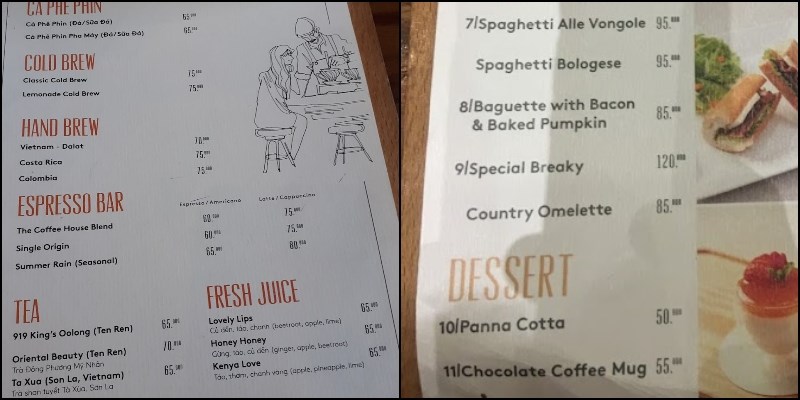 CÀ PHÊ PHIN
Cà Phê Phin (Đá/Sữa Đá) 65.000
Cà Phê Phin Pha Máy (Đá/Sữa Đá) 65.000
COLD BREW
Classic Cold Brew 75.000
Lemonade Cold Brew 75.000
HAND BREW
Vietnam - Dalat 70.000
Costa Rica 75.000
Colombia 75.000
ESPRESSO BAR Espresso / Americano Latte / Cappuccino
The Coffee House Blend 60.000 75.000
Single Origin 60.000 75.000
Summer Rain (Seasonal) 65.000 80.000
TEA
919 King's Oolong (Ten Ren) 65.000
Oriental Beauty (Ten Ren) 70.000
Trà Đông Phương Mỹ Nhân
Ta Xua (Son La, Vietnam) 65.000
Trà shan tuyết Tà Xùa, Sơn La
FRESH JUICE
Lovely Lips 65.000
Củ dền, táo, chanh (beetroot, apple, lime)
Honey Honey 65.000
Gừng, táo, củ dền (ginger, apple, beetroot)
Kenya Love 65.000
Táo, thơm, chanh vàng (apple, pineapple, lime)
7/Spaghetti Alle Vongole 95.000
Spaghetti Bologese 95.000
8/Baguette with Bacon 85.000
& Baked Pumpkin
9/Special Breaky 120.000
Country Omelette 85.000
DESSERT
10/Panna Cotta 50.000
11/Chocolate Coffee Mug 55.000